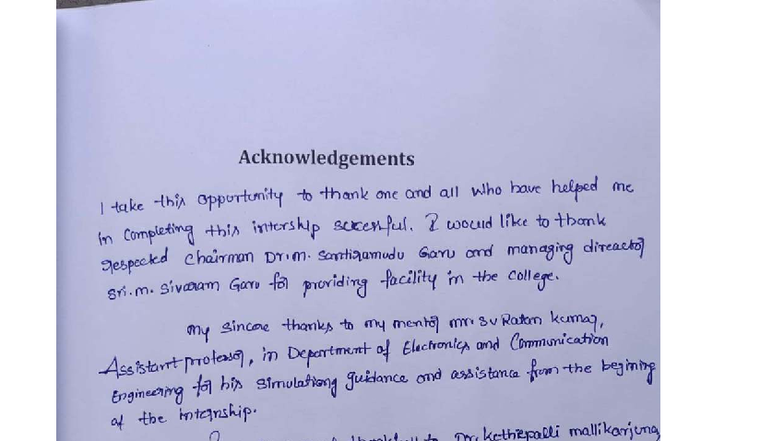 Acknowledgements
I take this opportunity to thank one and all who have helped me
in completing this intership sucessful. I would like to thank
respected chairman Dr.m. Santiramudu Garu and managing direactor
Sri.m. Sivaram Garu for providing facility in the college.
my sincere thanks to my mentor mr. SV Ratan kumar,
Assistant profesor, in Department of Electronics and Communication
Engineering for his simulationg guidance and assistance from the begining
of the internship.
to Dr. kethiepalli mallikarjuna